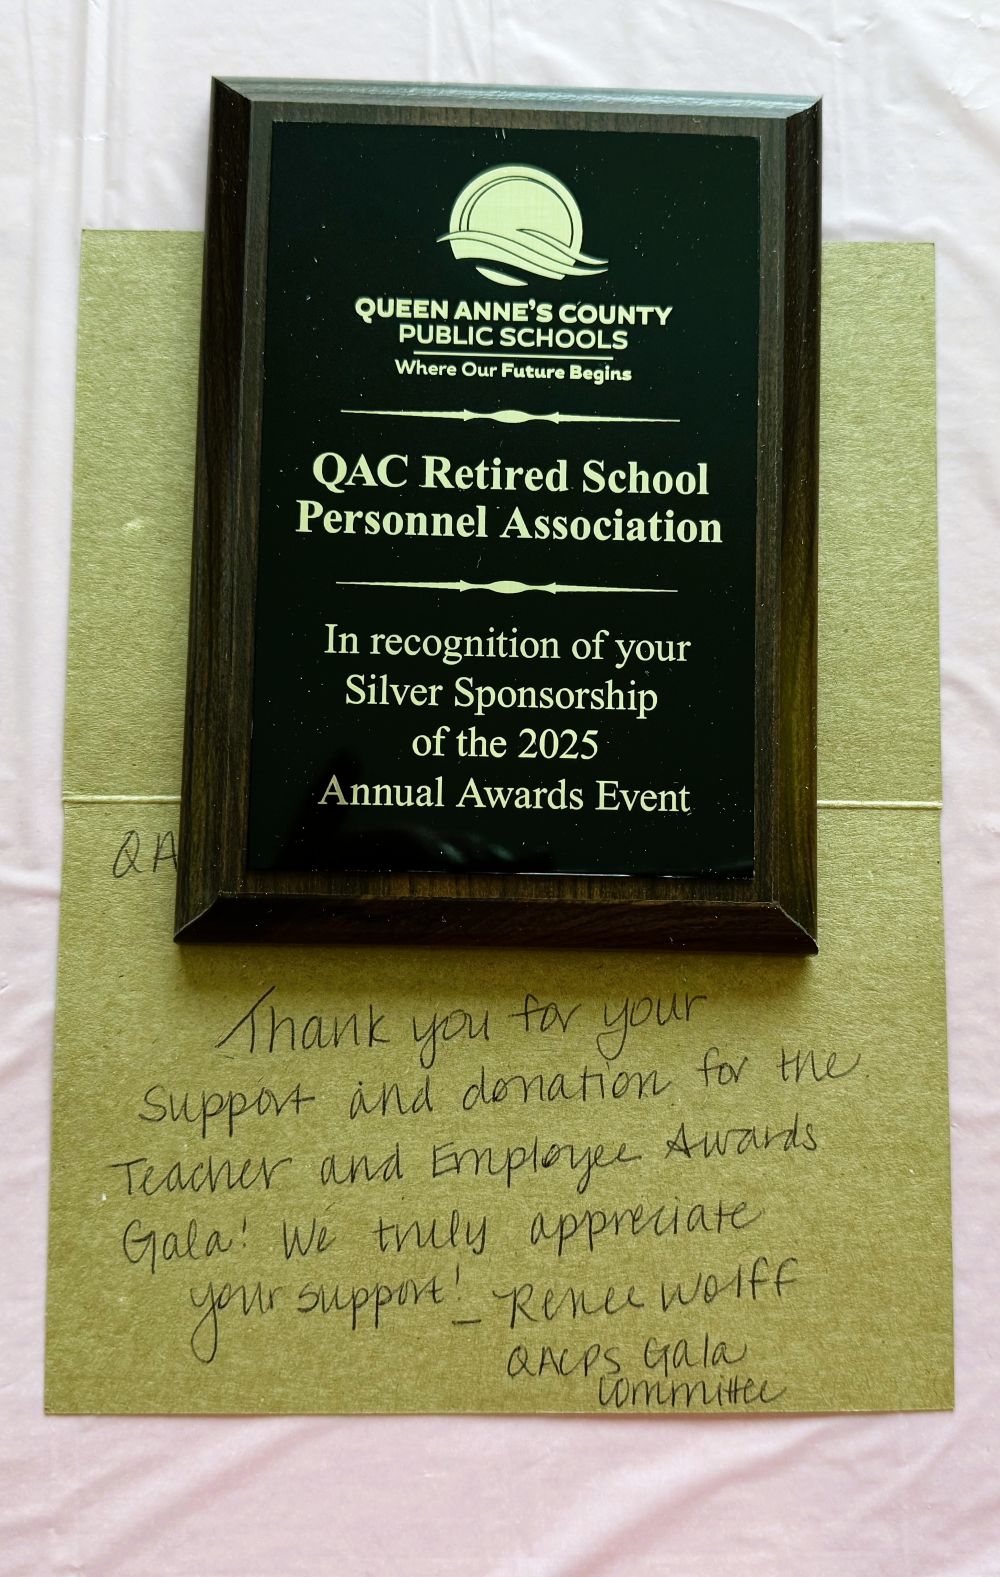 QUEEN ANNE'S COUNTY
PUBLIC SCHOOLS
Where Our Future Begins
QAC Retired School
Personnel Association
In recognition of your
Silver Sponsorship
of the 2025
Annual Awards Event
QA
Thank you for your
support and donation for the
Teacher and Employee Awards
Gala! We truly appreciate
your support! - Renee Wolff
QACPS Gala
Committee